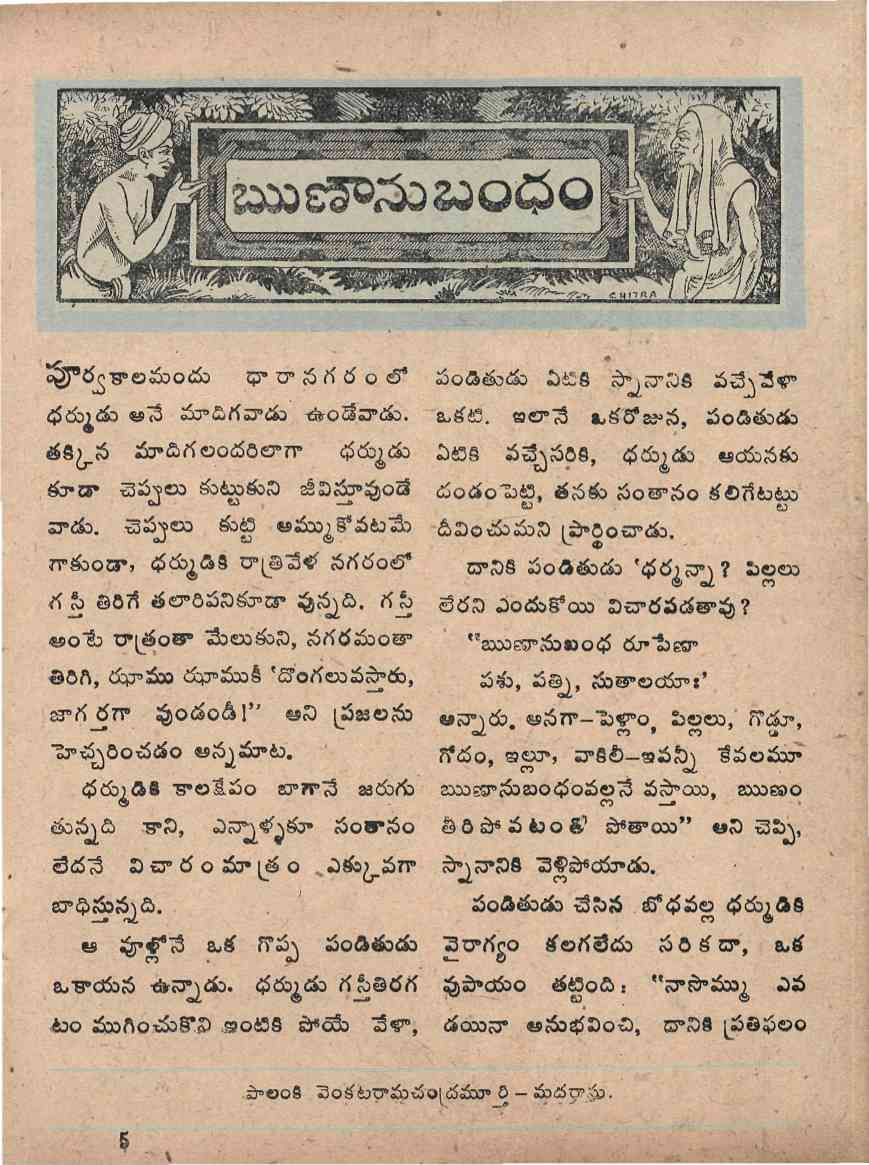 ఋణానుబంధం
CHITRA
పూర్వకాలమందు ధారానగరంలో
ధర్ముడు అనే మాదిగవాడు ఉండేవాడు.
తక్కిన మాదిగలందరిలాగా ధర్ముడు
కూడా చెప్పులు కుట్టుకుని జీవిస్తూవుండే
వాడు. చెప్పులు కుట్టి అమ్ముకోవటమే
గాకుండా, ధర్ముడికి రాత్రివేళ నగరంలో
గస్తీ తిరిగే తలారిపనికూడా వున్నది. గస్తీ
అంటే రాత్రంతా మేలుకుని, నగరమంతా
తిరిగి, ఝాము ఝాముకీ 'దొంగలువస్తారు,
జాగర్తగా వుండండీ!" అని ప్రజలను
హెచ్చరించడం అన్నమాట.
ధర్ముడికి కాలక్షేపం బాగానే జరుగు
తున్నది కాని, ఎన్నాళ్ళకూ సంతానం
లేదనే విచారంమాత్రం ఎక్కువగా
బాధిస్తున్నది.
ఆ వూళ్లోనే ఒక గొప్ప పండితుడు
ఒకాయన ఉన్నాడు. ధర్ముడు గస్తీతిరగ
టం ముగించుకొని ఇంటికి పోయే వేళా,
పండితుడు ఏటికి స్నానానికి వచ్చేవేళా
ఒకటి. ఇలానే ఒకరోజున, పండితుడు
ఏటికి వచ్చేసరికి, ధర్ముడు ఆయనకు
దండంపెట్టి, తనకు సంతానం కలిగేటట్టు
దీవించుమని ప్రార్థించాడు.
దానికి పండితుడు 'ధర్మన్నా? పిల్లలు
లేరని ఎందుకోయి విచారపడతావు?
"ఋణానుబంధ రూపేణా
పశు, పత్ని, సుతాలయాః'
అన్నారు. అనగా—పెళ్లాం, పిల్లలు, గొడ్డూ,
గోదం, ఇల్లూ, వాకిలీ—ఇవన్నీ కేవలమూ
ఋణానుబంధంవల్లనే వస్తాయి, ఋణం
తీరిపోవటంతో పోతాయి" అని చెప్పి,
స్నానానికి వెళ్లిపోయాడు.
పండితుడు చేసిన బోధవల్ల ధర్ముడికి
వైరాగ్యం కలగలేదు సరికదా, ఒక
వుపాయం తట్టింది: "నాసొమ్ము ఎవ
డయినా అనుభవించి, దానికి ప్రతిఫలం
పాలంకి వెంకటరామచంద్రమూర్తి — మదరాసు.
5